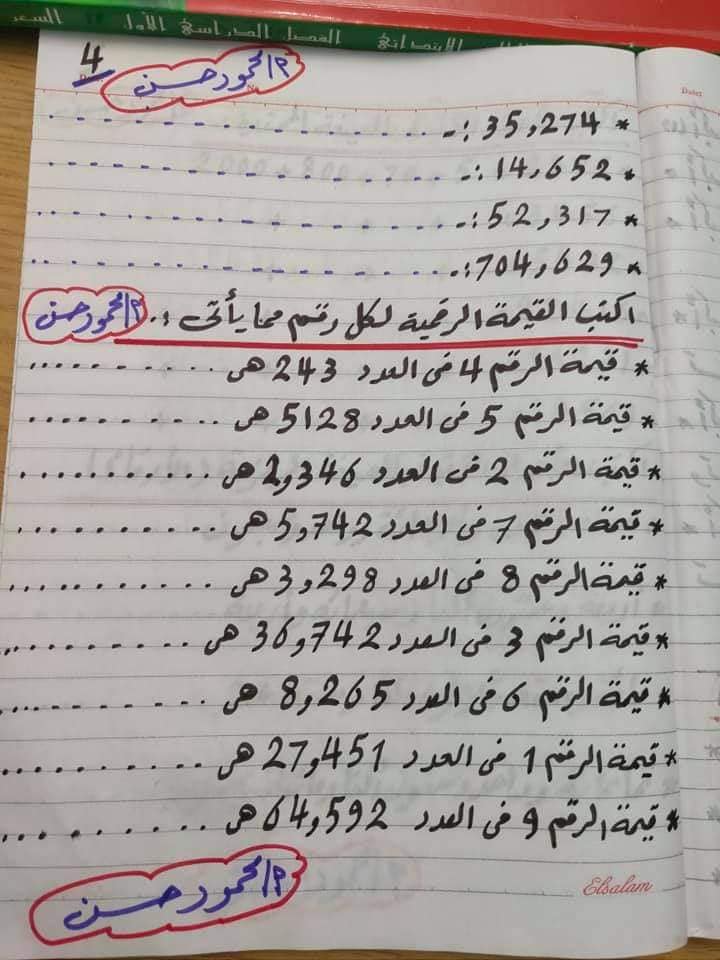 السعر الفصل الدراسي الأول الابتدائي
4
م/محمود حسن
* 35,274 :- ..................
* 14,652 :- ..................
* 52,317 :- ..................
* 704,629 :- ..................
اكتب القيمة الرقمية لكل رقم مما يأتى :. م/محمود حسن
* قيمة الرقم 4 فى العدد 243 هى ..........
* قيمة الرقم 5 فى العدد 5128 هى ..........
* قيمة الرقم 2 فى العدد 2,346 هى ..........
* قيمة الرقم 7 فى العدد 5,742 هى ..........
* قيمة الرقم 8 فى العدد 3,298 هى ..........
* قيمة الرقم 3 فى العدد 36,742 هى ..........
* قيمة الرقم 6 فى العدد 8,265 هى ..........
* قيمة الرقم 1 فى العدد 27,451 هى ..........
* قيمة الرقم 9 فى العدد 64,592 هى ..........
م/محمود حسن
Elsalam